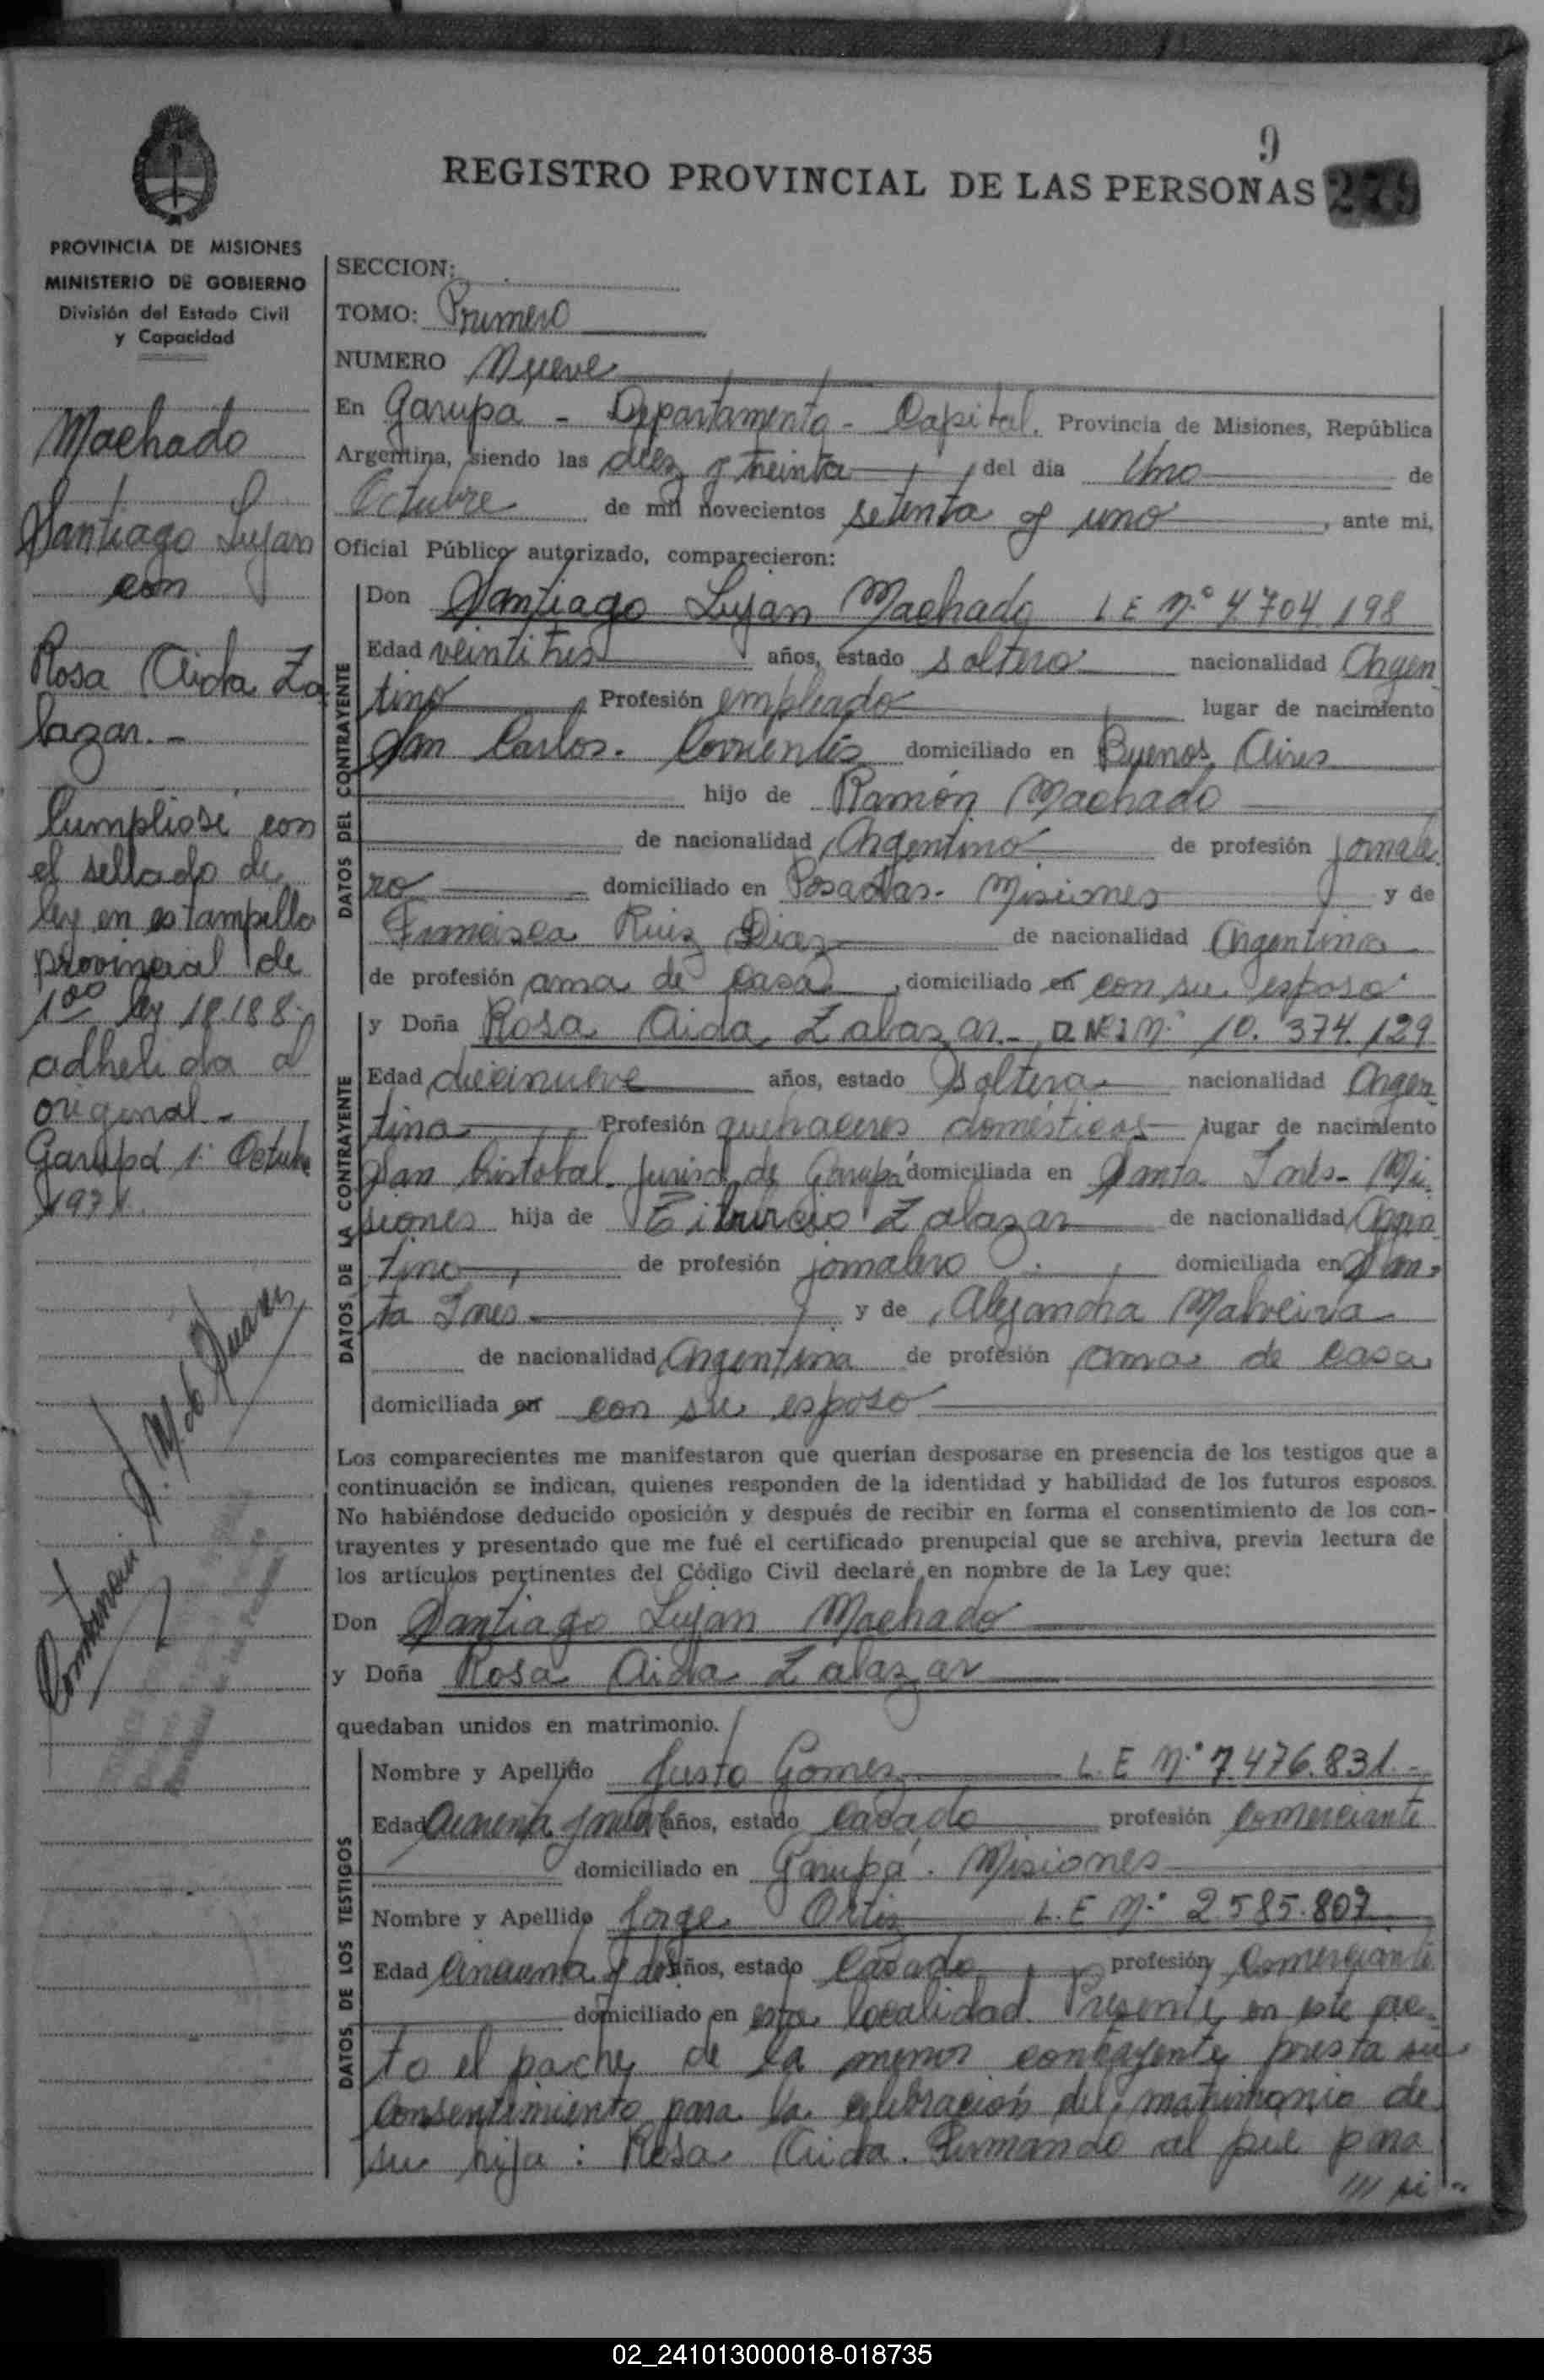 9
REGISTRO PROVINCIAL DE LAS PERSONAS 279
PROVINCIA DE MISIONES
MINISTERIO DE GOBIERNO
División del Estado Civil
y Capacidad
Machado
Santiago Lujan
con
Rosa Aida Za
lazar.-
Cumpliose con
el sellado de
ley en estampilla
provincial de
1⁰⁰ ley 18.188
adherida al
original-
Garupá 1° Octubre
1971.
SECCION:
TOMO: Primero
NUMERO Nueve
En Garupá - Departamento - Capital. Provincia de Misiones, República
Argentina, siendo las diez y treinta del día Uno de
Octubre de mil novecientos setenta y uno, ante mi,
Oficial Público autorizado, comparecieron:
DATOS DEL CONTRAYENTE
Don Santiago Lujan Machado L E N° 7.704.198
Edad veintitres años, estado soltero nacionalidad Argen
tino Profesión empleado lugar de nacimiento
San Carlos. Corrientes domiciliado en Buenos Aires
hijo de Ramón Machado
de nacionalidad Argentino de profesión jornale
ro domiciliado en Posadas. Misiones y de
Francisca Ruiz Diaz de nacionalidad Argentina
de profesión ama de casa, domiciliado en con su esposo
DATOS DE LA CONTRAYENTE
y Doña Rosa Aida Zalazar.- D.N.I N° 10.374.129
Edad diecinueve años, estado Soltera nacionalidad Argen
tina Profesión quehaceres domésticos lugar de nacimiento
San Cristobal. Jurisd. de Garupá domiciliada en Santa Inés- Mi
siones hija de Tiburcio Zalazar de nacionalidad Argen
tino, de profesión jornalero domiciliada en San-
ta Inés y de Alejandra Malveira
de nacionalidad Argentina de profesión ama de casa
domiciliada en con su esposo
Los comparecientes me manifestaron que querían desposarse en presencia de los testigos que a
continuación se indican, quienes responden de la identidad y habilidad de los futuros esposos.
No habiéndose deducido oposición y después de recibir en forma el consentimiento de los con-
trayentes y presentado que me fué el certificado prenupcial que se archiva, previa lectura de
los artículos pertinentes del Código Civil declaré en nombre de la Ley que:
Don Santiago Lujan Machado
y Doña Rosa Aida Zalazar
quedaban unidos en matrimonio.
DATOS DE LOS TESTIGOS
Nombre y Apellido Justo Gomez L. E N° 7.476.831.-
Edad años, estado Casado profesión Comerciante
domiciliado en Garupá. Misiones
Nombre y Apellido Jorge Ortiz L. E N° 2585.807
Edad cincuenta y dos años, estado Casado profesión Comerciante
domiciliado en esta localidad. Presente en este ac-
to el padre de la menor contrayente presta su
Consentimiento para la celebración del matrimonio de
su hija: Rosa Aida. Firmando al pie para
/// si-
02_241013000018-018735